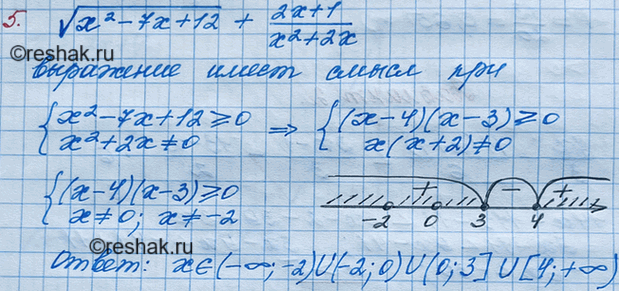 5. √(x²-7x+12) + (2x+1)/(x²+2x)
©reshak.ru
выражение имеет смысл при
{ x²-7x+12≥0 ⇒ { (x-4)(x-3)≥0
x²+2x≠0 x(x+2)≠0
{ (x-4)(x-3)≥0 + - +
x≠0; x≠-2 -2 0 3 4
©reshak.ru
Ответ: x∈(-∞;-2)∪(-2;0)∪(0;3]∪[4;+∞)